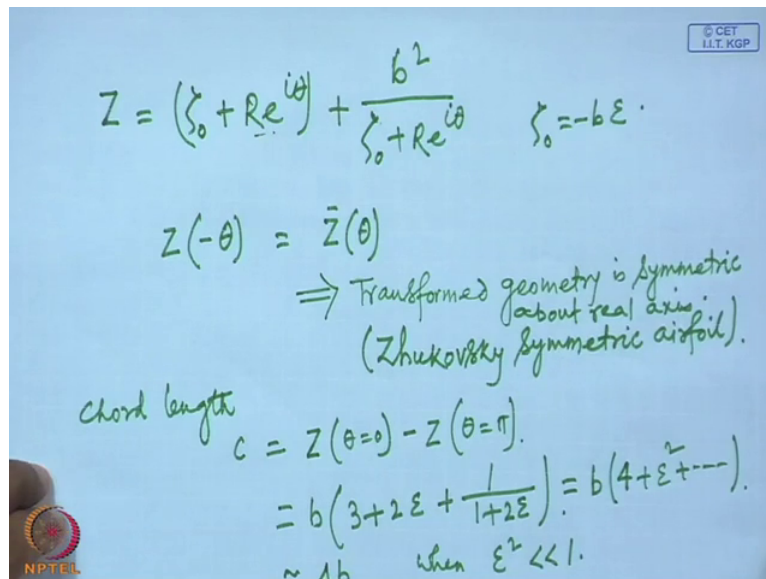 © CET
I.I.T. KGP
Z = (ζ₀ + Re^{iθ}) + b²/(ζ₀ + Re^{iθ})   ζ₀ = -bε.
Z(-θ) = Z̄(θ)
⇒ Transformed geometry is symmetric
about real axis.
(Zhukovsky symmetric airfoil).
Chord length
c = Z(θ=0) - Z(θ=π).
= b(3+2ε + 1/(1+2ε)) = b(4+ε²+----).
~ 4b when ε² << 1.
NPTEL